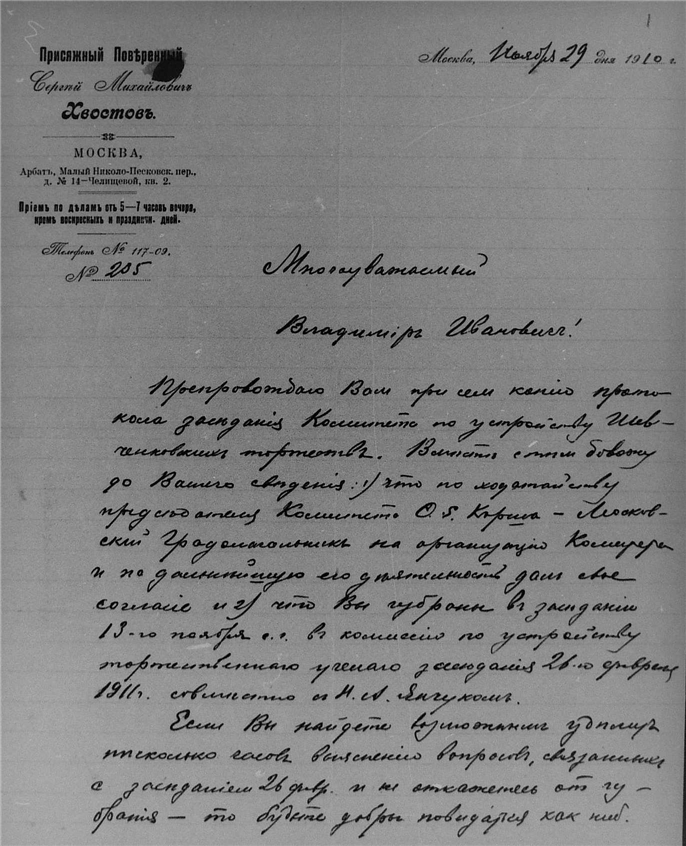 1
Присяжный Повѣренный
Сергѣй Михайловичъ
Хвостовъ.
МОСКВА,
Арбатъ, Малый Николо-Песковск. пер.,
д. № 14—Челищевой, кв. 2.
Пріемъ по дѣламъ отъ 5—7 часовъ вечера,
кромѣ воскресныхъ и праздничн. дней.
Телефонъ № 117-09.
№ 205
Москва, Ноября 29 дня 1910 г.
Многоуважаемый
Владиміръ Ивановичъ!
Препровождаю Вам при сем копію прото-
кола засѣданія Комитета по устройству Шев-
ченковских торжествъ. Вмѣстѣ с тѣм довожу
до Вашего свѣдѣнія: 1) что по ходатайству
предсѣдателя Комитета Ѳ. Е. Корша – Москов-
скій Градоначальникъ на организацію Комитета
и на дальнѣйшую его дѣятельность дал свое
согласіе и 2) что Вы избраны в засѣданіи
13-го ноября с.г. в комиссію по устройству
торжественнаго ученаго засѣданія 26-го февраля
1911 г. совмѣстно с Н. А. Янчуком.
Если Вы найдете возможным удѣлить
нѣсколько часов выясненію вопросов, связанных
с засѣданіем 26 февр. и не откажетесь от из-
бранія — то будьте добры повидаться как ниб.